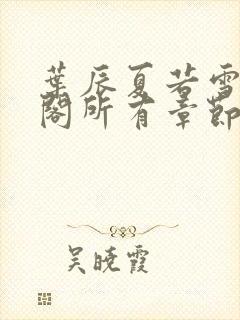 葉辰夏若雪
閣所有章節
吴曉霞